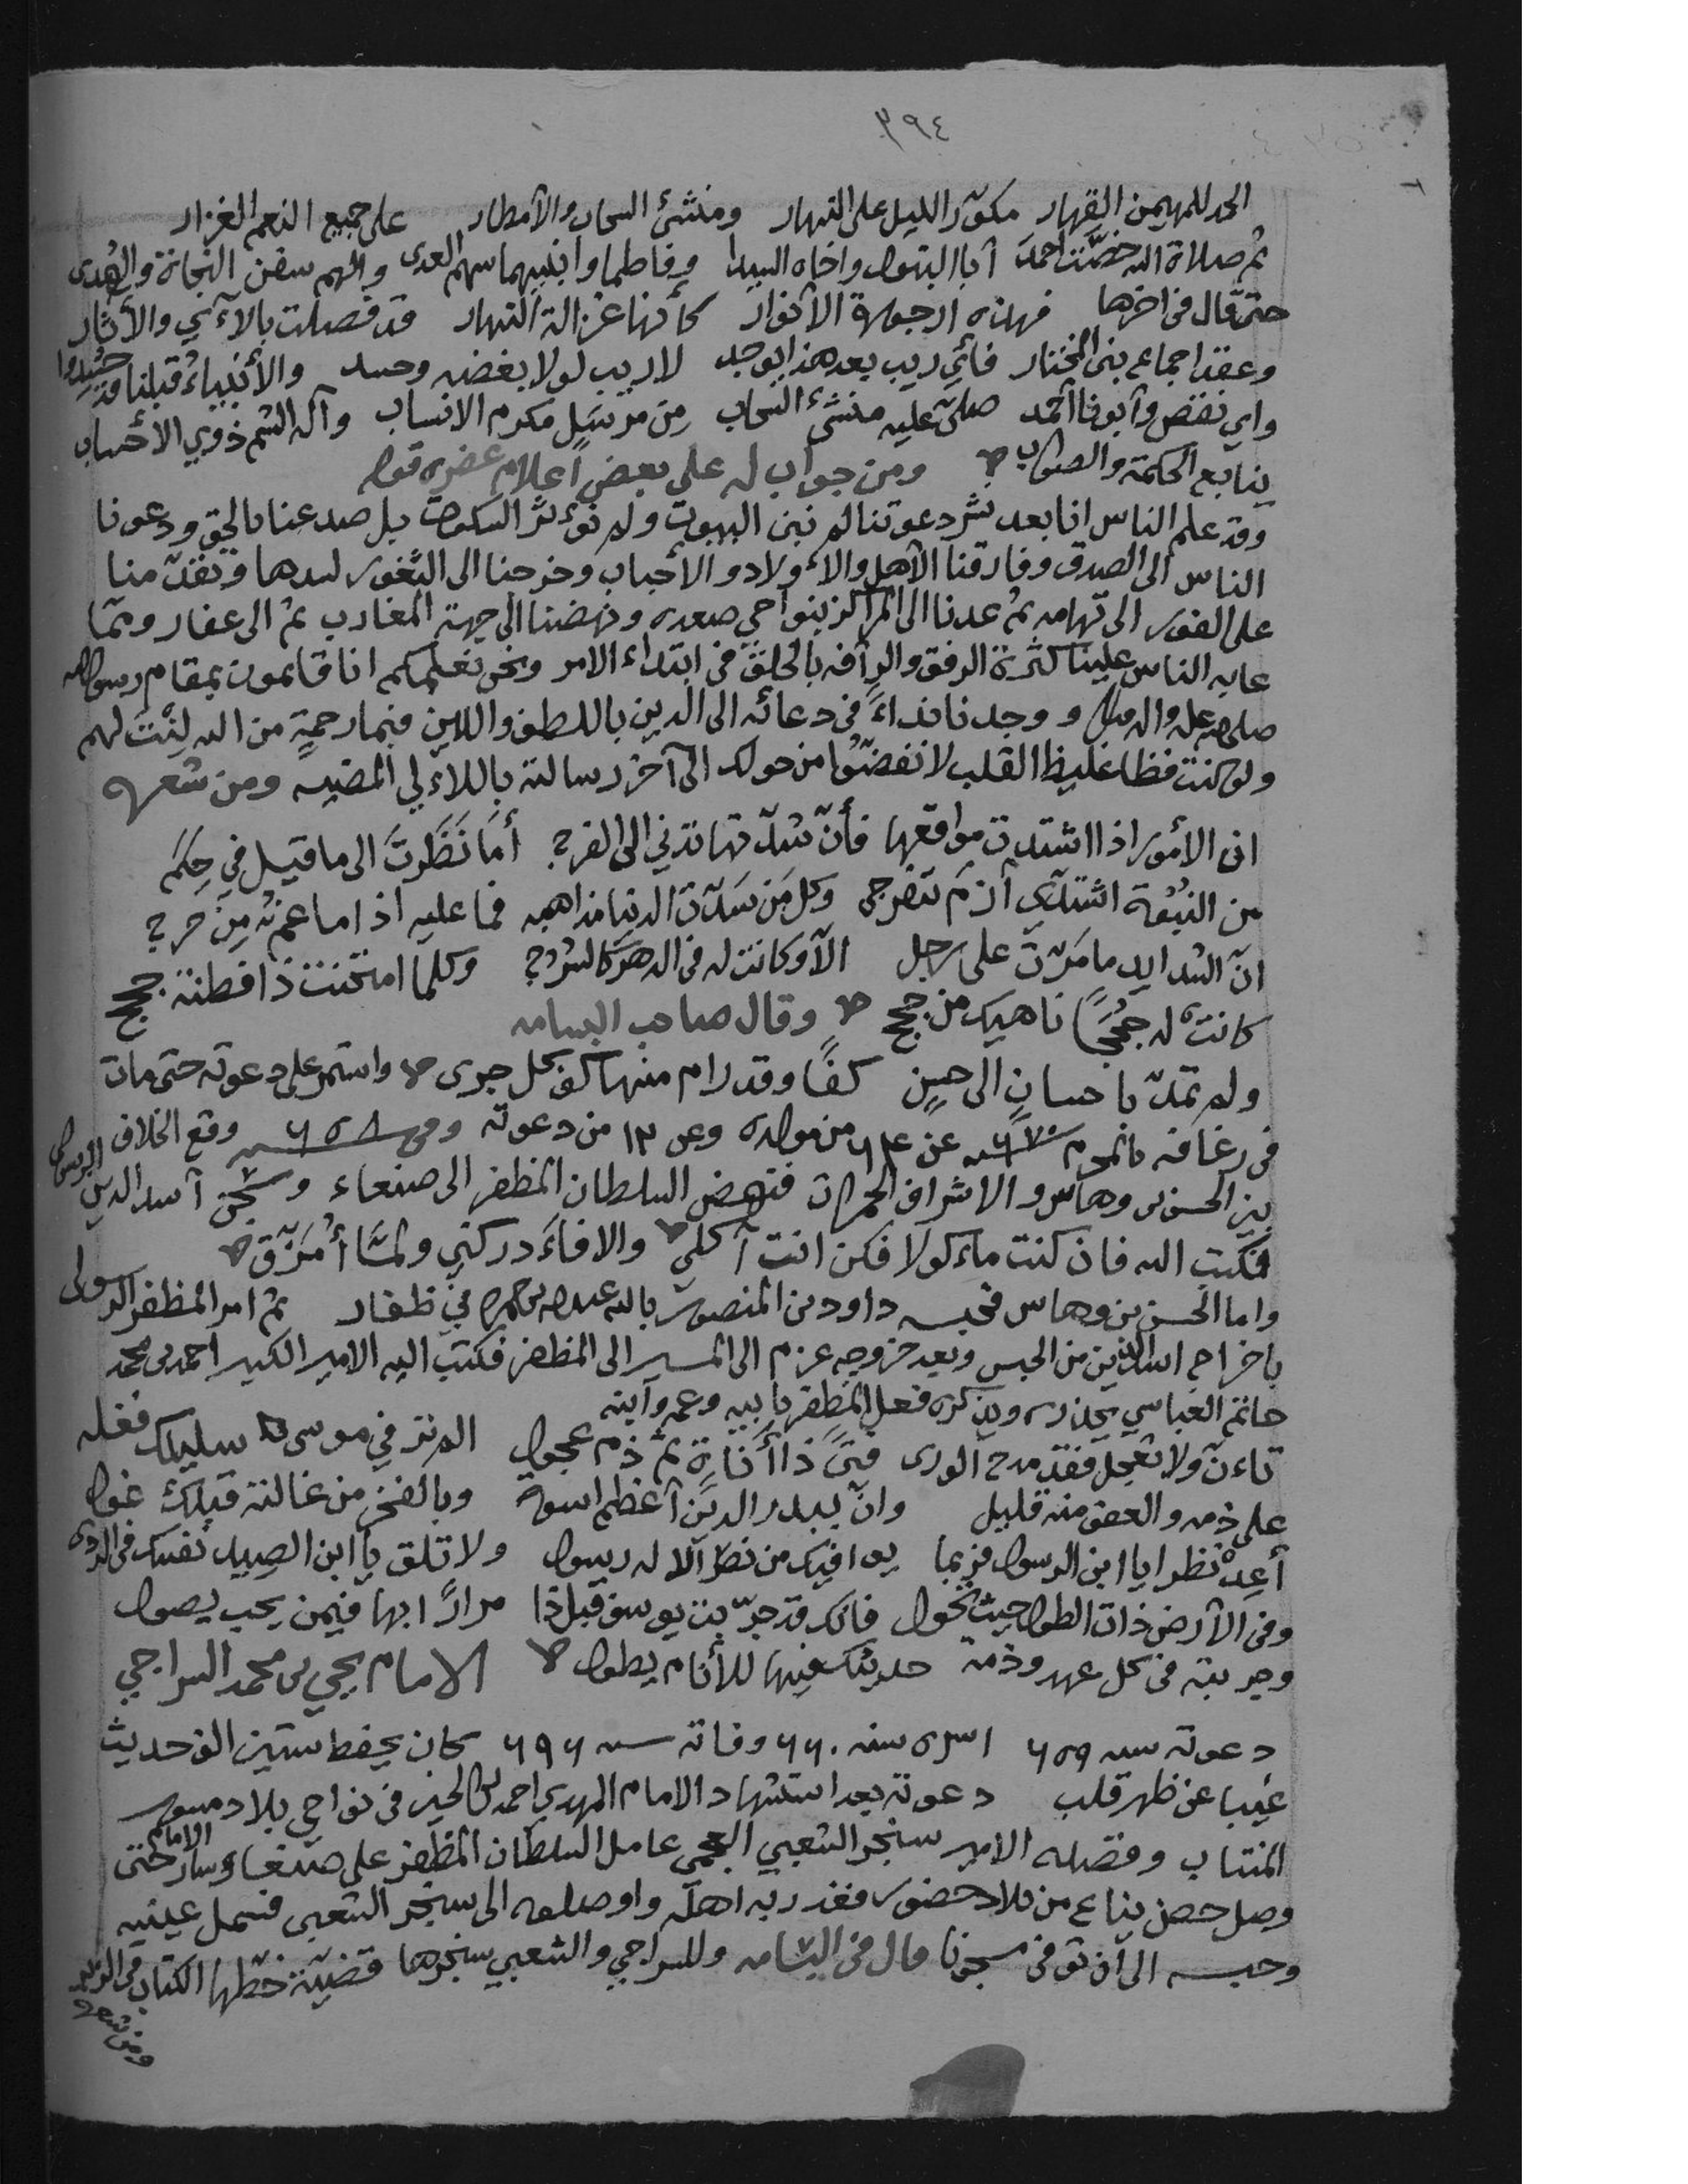 ٣٩٤
الحمد للمهيمن القهار مكوّر الليل على النهار ومنشئ السحاب والأمطار على جميع النعم الغزار
ثم صلاة الله خصّت أحمد أبا البتول وأخاه السيدا وفاطما وابنيهما سم العدى وآلهم سفن النجاة والهدى
حتى قال في اخرها فهذه ارجوزة الأنوار كأنها غزالة النهار قد فصلت بالآي والآثار
وعقد اجماع بني المختار فأي ريب بعد هذا يوجد لا ريب لولا بغضه وحسد والأنبياء قبلنا قد حُسِدوا
واي نقص وأبونا أحمد صلى عليه منشئ السحاب من مرسل مكرم الانساب وآله الشم ذوي الأحساب
ينابع الحكمة والصواب ومن جواب له على بعض أعلام عصره قوله
وقد علم الناس انا بعد نشر دعوتنا لم نبن البيوت ولم نؤثر السكوت بل صدعنا بالحق ودعونا
الناس الى الصدق وفارقنا الأهل والأولاد والأحباب وخرجنا الى الثغور لسدها ونفذ منا
على الفور الى تهامه ثم عدنا الى المراكز بنواحي صعده ونهضنا الى جهة المغارب ثم الى عفار ومما
عابه الناس علينا كثرة الرفق والرأفه بالخلق في ابتداء الامر ونحن نعلمكم انا قائمون بمقام رسول الله
صلى الله عليه واله وسلم ووجدنا فى دعائه الى الدين باللطف واللين فبما رحمة من الله لِنْتَ لهم
ولو كنت فظا غليظ القلب لانفضّوا من حولك الى آخر رسالته باللآلي المضيه ومن شعره
ان الأمور اذا اشتدت مواقعها فأنّ شدّتها تدني الى الفرج أما نَظَرتَ الى ما قيل في حِكَم
من النبوة اشتدّي أزمَ تنفرجي وكل من سَدّت الدنيا مذاهبه فما عليه اذا ما عمّ من حرج
انّ الشدايد ما مَرّت على رجل الّا وكانت له في الدهر كالسُرج وكلما امتُحنت ذا فطنة حجج
كانت له حججًا ناهيك من حجج وقال صاحب البسامه
ولم تمدّ باحسانٍ الى حسنٍ كفًا وقد رام منها كف كل جرى واستمر على دعوته حتى مات
في رغافه بالمحرم سنة ٦٧٠ عن من مولده وعن ١٣ من دعوته وفي سنة ٦٥٨ وقع الخلاف
بين الحسن بن وهاس والاشراف الحمزات فنهض السلطان المظفر الى صنعاء وسجن أسد الدين الرسولي
فكتب اليه فان كنت ماءكولا فكن انت آكلي والا فاءَدركني ولمّا أُمَزّق
واما الحسن بن وهاس فحبسه داود بن المنصور بالله عبدالله بن حمزه في ظفار ثم امر المظفر الرسولي
باخراج اسد الدين من الحبس وبعد خروجه عزم الى المسير الى المظفر فكتب اليه الامير الكبير احمد بن محمد
حاتم العباسي يحذره ويذكره فعل المظفر بابيه وعمه وابنه
تاءَنّ ولا تعجل فقد مدح الورى فتىً ذا أناةٍ ثم ذم عجول الم تر في موسى سليلك فعله
على ذمه والعفو منه قليل وانّ ببدر الدين أعظم اسوة وبالفخر من غالته قبلك غول
أعِدْ نظرا يا ابن الرسول فربما يوافيك من نظر الاله رسول ولا تلق يا ابن الصيد نفسك في الردى
وفى الأرض ذات الطول حيث تجول فانك قد جرّبت يوسف قبل ذا مرارًا بها فيمن يحب يصول
وجربته في كل عهد وذمة حديثك فيها للأنام يطول الامام يحيى بن محمد السراجي
دعوته سنه ٦٥٩ اسره سنه ٦٦٠ وفاته سنه ٦٩٦ كان يحفظ ستين الف حديث
غيبا عن ظهر قلب دعوته بعد استشهاد الامام المهدي احمد بن الحسين في نواحي بلاد مسور
المنتاب وقصده الامير سنجر الشعبي العجمي عامل السلطان المظفر على صنعا وسار الامام حتى
وصل حصن بناع من بلاد حضور فغدر به اهله واوصلوه الى سنجر الشعبي فسمل عينيه
وحبسه الى أن توفى مسجونا قال في البسامه وللسراجي والشعبي سنجرها قضية خطها الكتاب في الزبر
ومن شعره